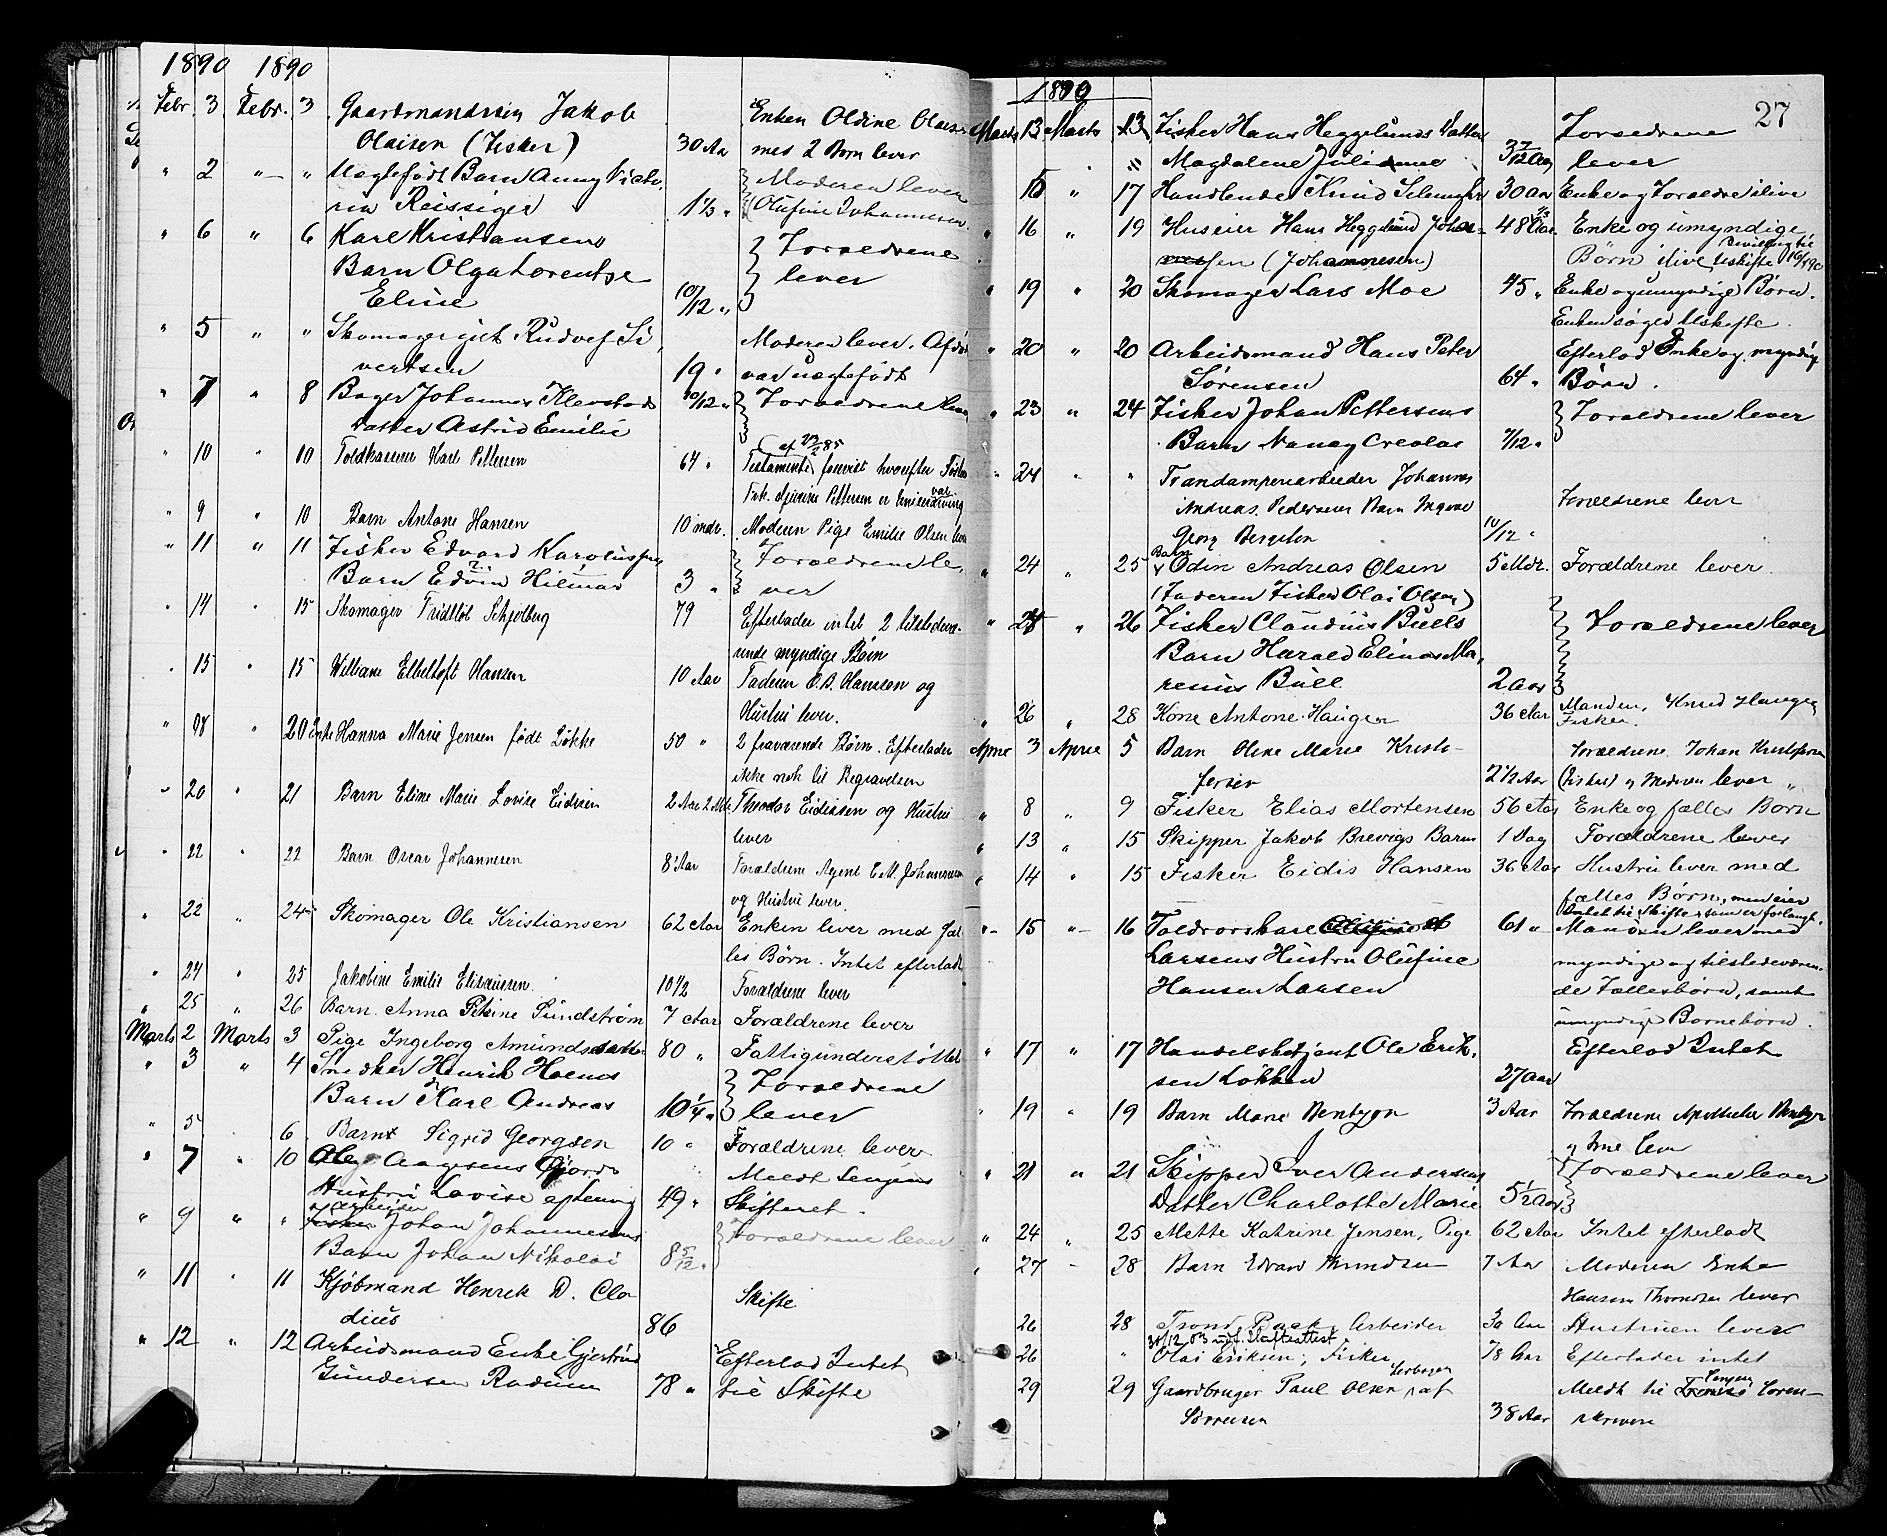 1890 1890
Febr. 3 Febr. 3 Gaardmandssøn Jakob
Olaisen (Fisker) 30 Aar
Enken Oldine Olais
med 2 Børn lever
" 2 " " Uægtefødt Barn Anny Victo-
ria Reissiger 1 1/3 "
Moderen lever
(Olufine Johannesen
" 6 " 6 Karl Kristiansens
Barn Olga Lorentze
Eline 10/12 "
Forældrene
lever
" 5 " " Skomagergut Rudolf Si-
vertsen 19 "
Moderen lever. Afdøde
var uægtefødt
" 7 " 8 Bager Johannes Klevstads 10/12 "
Datter Astrid Emilie
Forældrene lever
" 10 " 10 Toldkasserer Karl Pettersen 64 "
Testamente forevist hvorefter
Pettersen er
" 9 " 10 Barn Antone Hansen 10 mdr. Moderen Pige Emilie Olsen lever
" 11 " 11 Fisker Edvard Karolius
Barn Edvin Hilmar 3 "
Forældrene le-
ver
" 14 " 15 Skomager Fridtlob Schjelberg 79 Efterlader intet 2 tilstedevæ-
rende myndige Børn
" 15 " 15 William Elbeltoft Hansen 10 Aar Faderen O.B. Hansen og
Hustru lever.
" 18 " 20 Enke Hanna Marie Jensen født Løkke 50 " 2 fraværende Børn. Efterlader
ikke nok til Begravelsen
" 20 " 21 Barn Eline Marie Lovise Eidisen 2 Aar 2 Mdr Theodor Eidissen og Hustru
lever
" 22 " 22 Barn Oscar Johannesen 8 Aar Forældrene Agent E.M. Johannesen
og Hustru lever.
" 22 " 24 Skomager Ole Kristiansen 62 Aar Enken lever med fæl
les Børn. Intet efterladt
" 24 " 25 Jakobine Emilie Eliseussen. 10 1/2 Forældrene lever
" 25 " 26 Barn Anna Petrine Sundstrøm 7 Aar Forældrene lever
Marts 2 Marts 3 Pige Ingeborg Amundsdatter 80 " Fattigunderstøttet
" 3 " 4 Snedker Henrik Holms
Barn Karl Andreas 10 1/4 "
Forældrene
lever
" 5 " 6 Barn Sigrid Georgsen 10 " Forældrene lever
" 7 " 10 Ole Aagesens Gjords
Hustru Lovise 49 "
Meldt Senjens
Skifteret.
" 9 " " Arbeider Johan Johannesens
Barn Johan Nikolai 8 5/12 "
Forældrene lever
" 11 " 11 Kjøbmand Henrik D. Clo-
dius 86
Skifte
" 12 " 12 Arbeidsmand Enke Gjertrud
Gundersen Rødum 78 "
Efterlod Intet
til Skifte
27
1890
Marts 13 Marts 13 Fisker Hans Heggelunds Datter
Magdalene Julianne 3 7/12 Aar
Forældrene
lever
15 " 17 Handlende Knud Selmer 30 Aar Enke og Forældre ilive
" 16 " 19 Huseier Hans Heggelund Johan-
nessen (Johannesen) 48 Aar
Enke og umyndige
Børn ilive
" 19 " 20 Skomager Lars Moe 45 " Enke og umyndige Børn.
Enken søger tilskifte.
" 20 " 20 Arbeidsmand Hans Peter
Sørensen 64 "
Efterlod Enke og myndige
Børn.
" 23 " 24 Fisker Johan Pettersens
Barn Nanny Creolas 7/12 "
Forældrene lever
" 24 " " Trandamperiarbeider Johannes
Andreas Pedersens Barn Ingvar
Georg Bergeton 10/12 "
Forældrene lever
" 24 " 25 Barn Odin Andreas Olsen 5 Mdr. Forældrene lever
(Faderen Fisker Olai Olsen)
" 24 " 26 Fisker Claudius Bulls
Barn Harald Elinas Ma-
renius Bull 2 Aar
Forældrene lever
" 26 " 28 Kone Antone Haugen 36 Aar Manden, Knud Haugen
Fisker.
April 3 April 5 Barn Oline Marie Kristo-
fersen 2 1/2 Aar
Forældrene Johan Kristofersen
(Fisker) og Moderen lever "
" 8 " 9 Fisker Elias Mortensen 56 Aar Enke og fælles Børn
" 13 " 15 Skipper Jakob Brevigs Barn 1 Dag Forældrene lever
" 14 " 15 Fisker Eidis Hansen 36 Aar Hustru lever med
fælles Børn, men eier
Intet til Skifte, som er forlangt.
" 15 " 16 Toldrorskarl
Larsens Hustru Olufine
Hansen Larsen 61 "
Manden lever med
myndige og tilstedeværen-
de Fællesbørn, samt
umyndige Børnebørn.
" 17 " 17 Handelsbetjent Ole Erik-
sen Løkken 27 Aar
Efterlod Intet
" 19 " 19 Barn Marie Bentzon 3 Aar Forældrene Apotheker Bentzon
og Frue lever
" 21 " 21 Skipper Iver Andersens
Datter Charlotte Marie 5 1/2 Aar
Forældrene lever
" 24 " 25 Mette Katrine Jensen, Pige 62 Aar Intet efterladt
" 27 - 28 Barn Edvard Throndsen 7 Aar Moderen Enke
Hansen Throndsen lever
26 28 Trond Back, Arbeider 30 Aar Hustruen lever
31/12 03 udf. Skifteattest
26 " Olai Eriksen, Fisker 78 Aar Efterlader intet
29 29 Gaardbruger Paul Olsen af
Sørreisen 38 Aar
Meldt til Senjen Soren-
skriveri